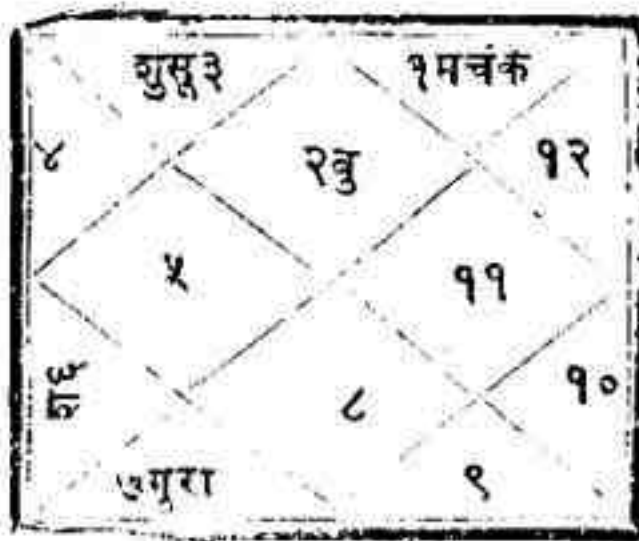 शुसू३
१मचंकं
४
२वु
१२
५
११
श६
८
१०
७गुरा
९